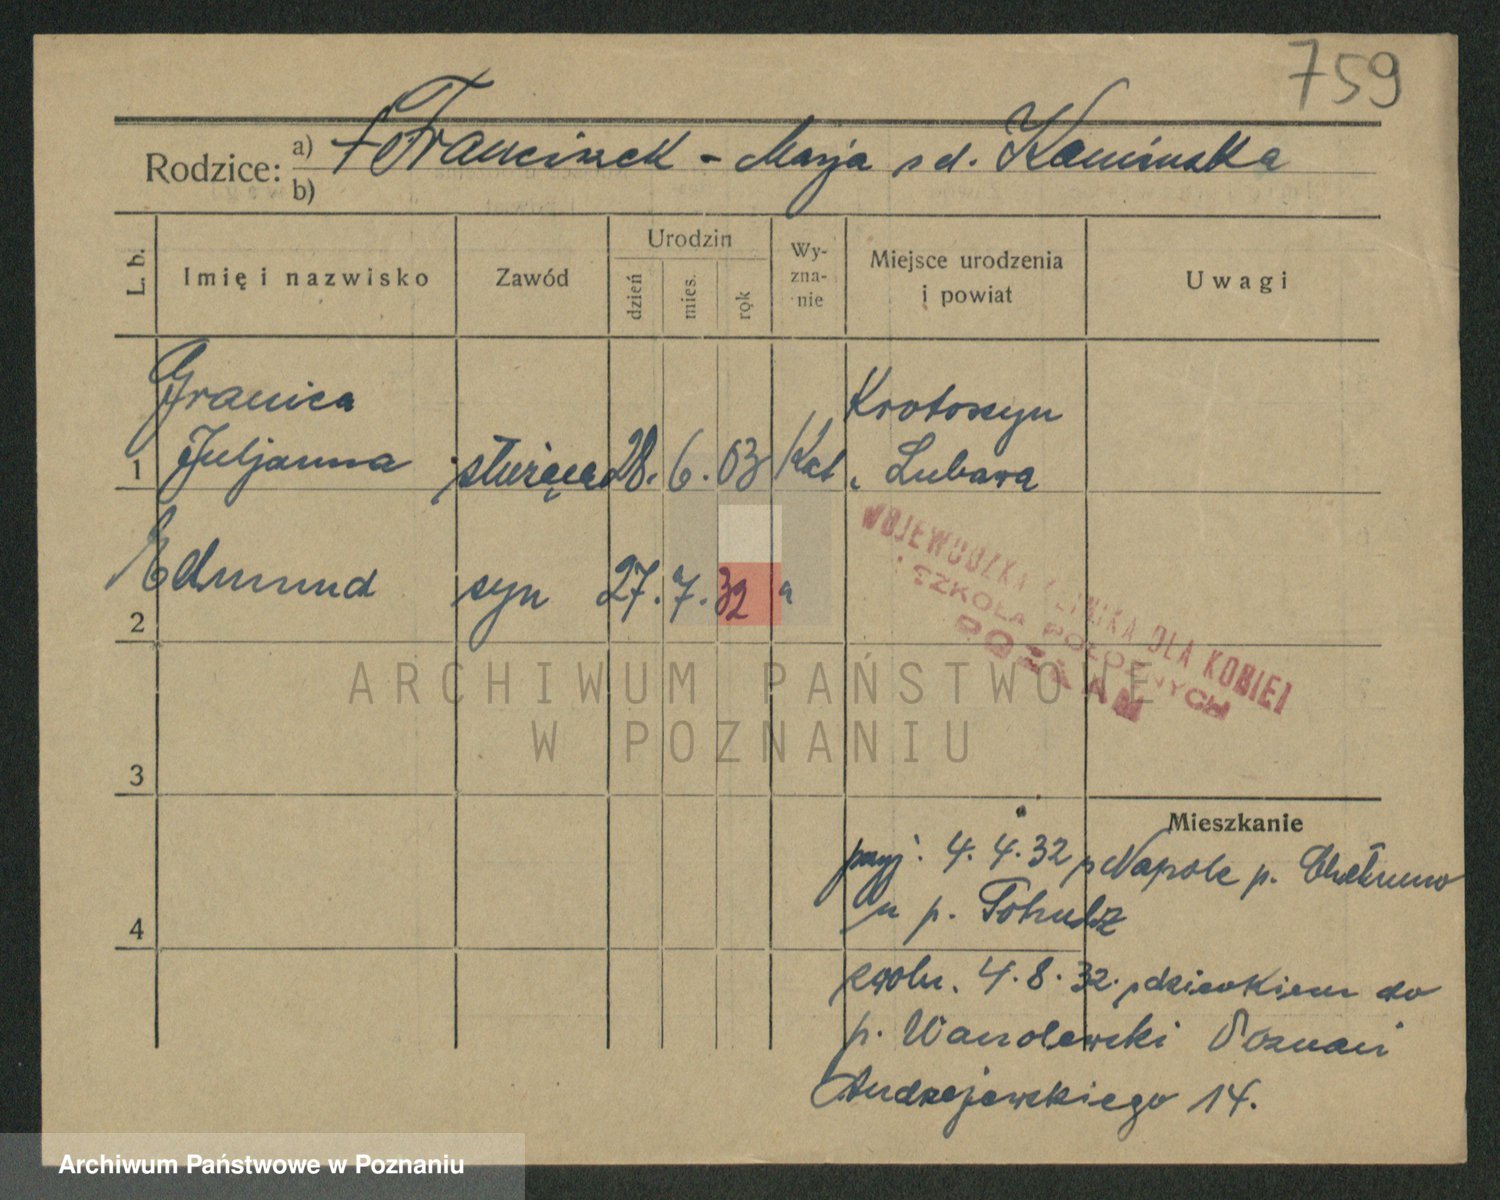 759
Rodzice: a) + Franciszek - Marja z d. Kamińska
b)
L. b.
Imię i nazwisko
Zawód
Urodzin
dzień
mies.
rok
Wy-
zna-
nie
Miejsce urodzenia
i powiat
Uwagi
Granica
Juljanna
1
służąca
28. 6. 03
Kat
Krotoszyn
Lubawa
Edmund
2
syn
27. 7. 32
"
WOJEWÓDZKA KLINIKA DLA KOBIET
SZKOŁA POŁOŻNYCH
POZNAŃ
ARCHIWUM PAŃSTWOWE
W POZNANIU
3
Mieszkanie
przyj. 4. 4. 32 z Napole p.
u p.
4
zwoln. 4. 8. 32. z dzieckiem do
p. Poznań
Andrzejewskiego 14.
Archiwum Państwowe w Poznaniu